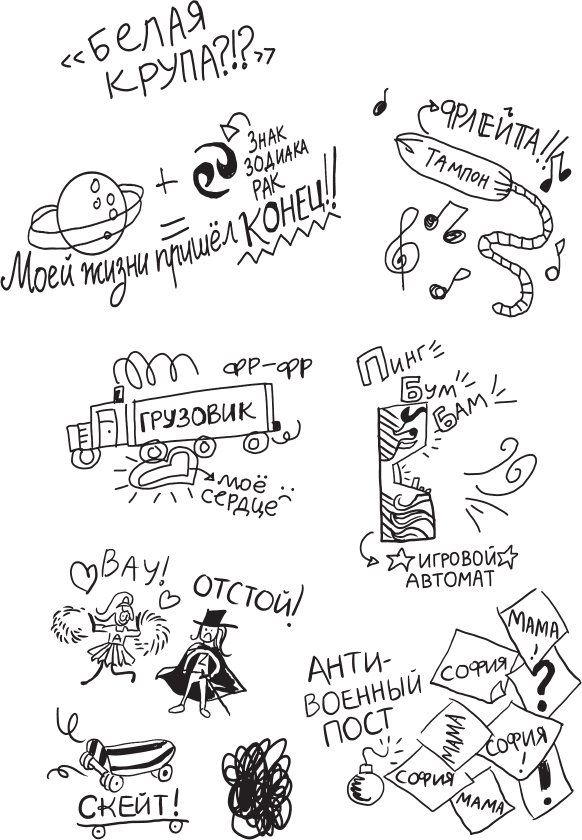 «БЕЛАЯ
КРУПА?!?»
ФЛЕЙТА!!
ЗНАК
ЗОДИАКА
РАК
+
ТАМПОН
=
Моей жизни пришёл КОНЕЦ!!
ФРР-ФРР
ГРУЗОВИК
МОЁ
СЕРДЦЕ
ПИНГ
БУМ
БАМ
ИГРОВОЙ
АВТОМАТ
ВАУ!
ОТСТОЙ!
АНТИ-
ВОЕННЫЙ
ПОСТ
МАМА!
СОФИЯ
?
МАМА
СОФИЯ!
СОФИЯ
!
МАМА
СКЕЙТ!